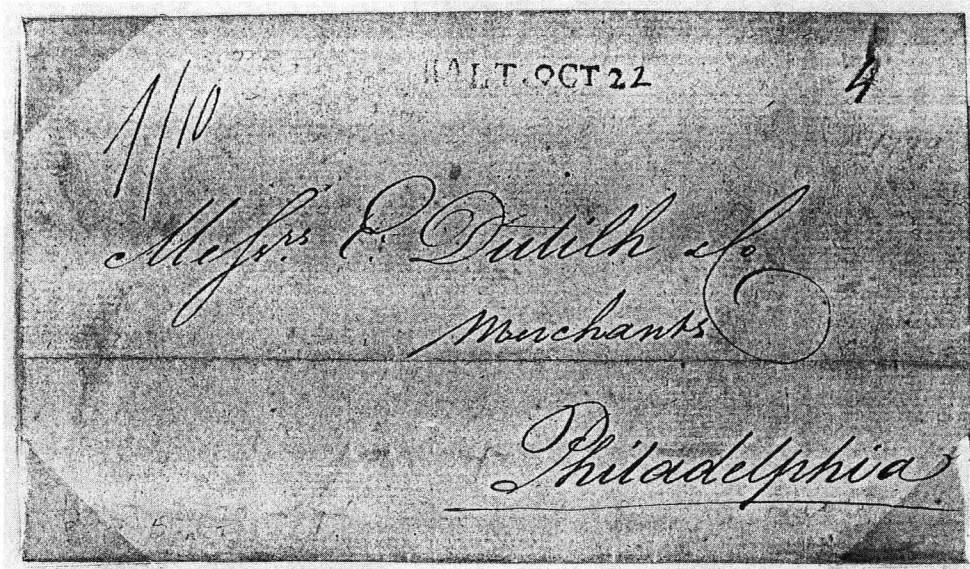 BALT. OCT 22
4
1/10
Messrs. E. Dutilh & Co
Merchants
Philadelphia